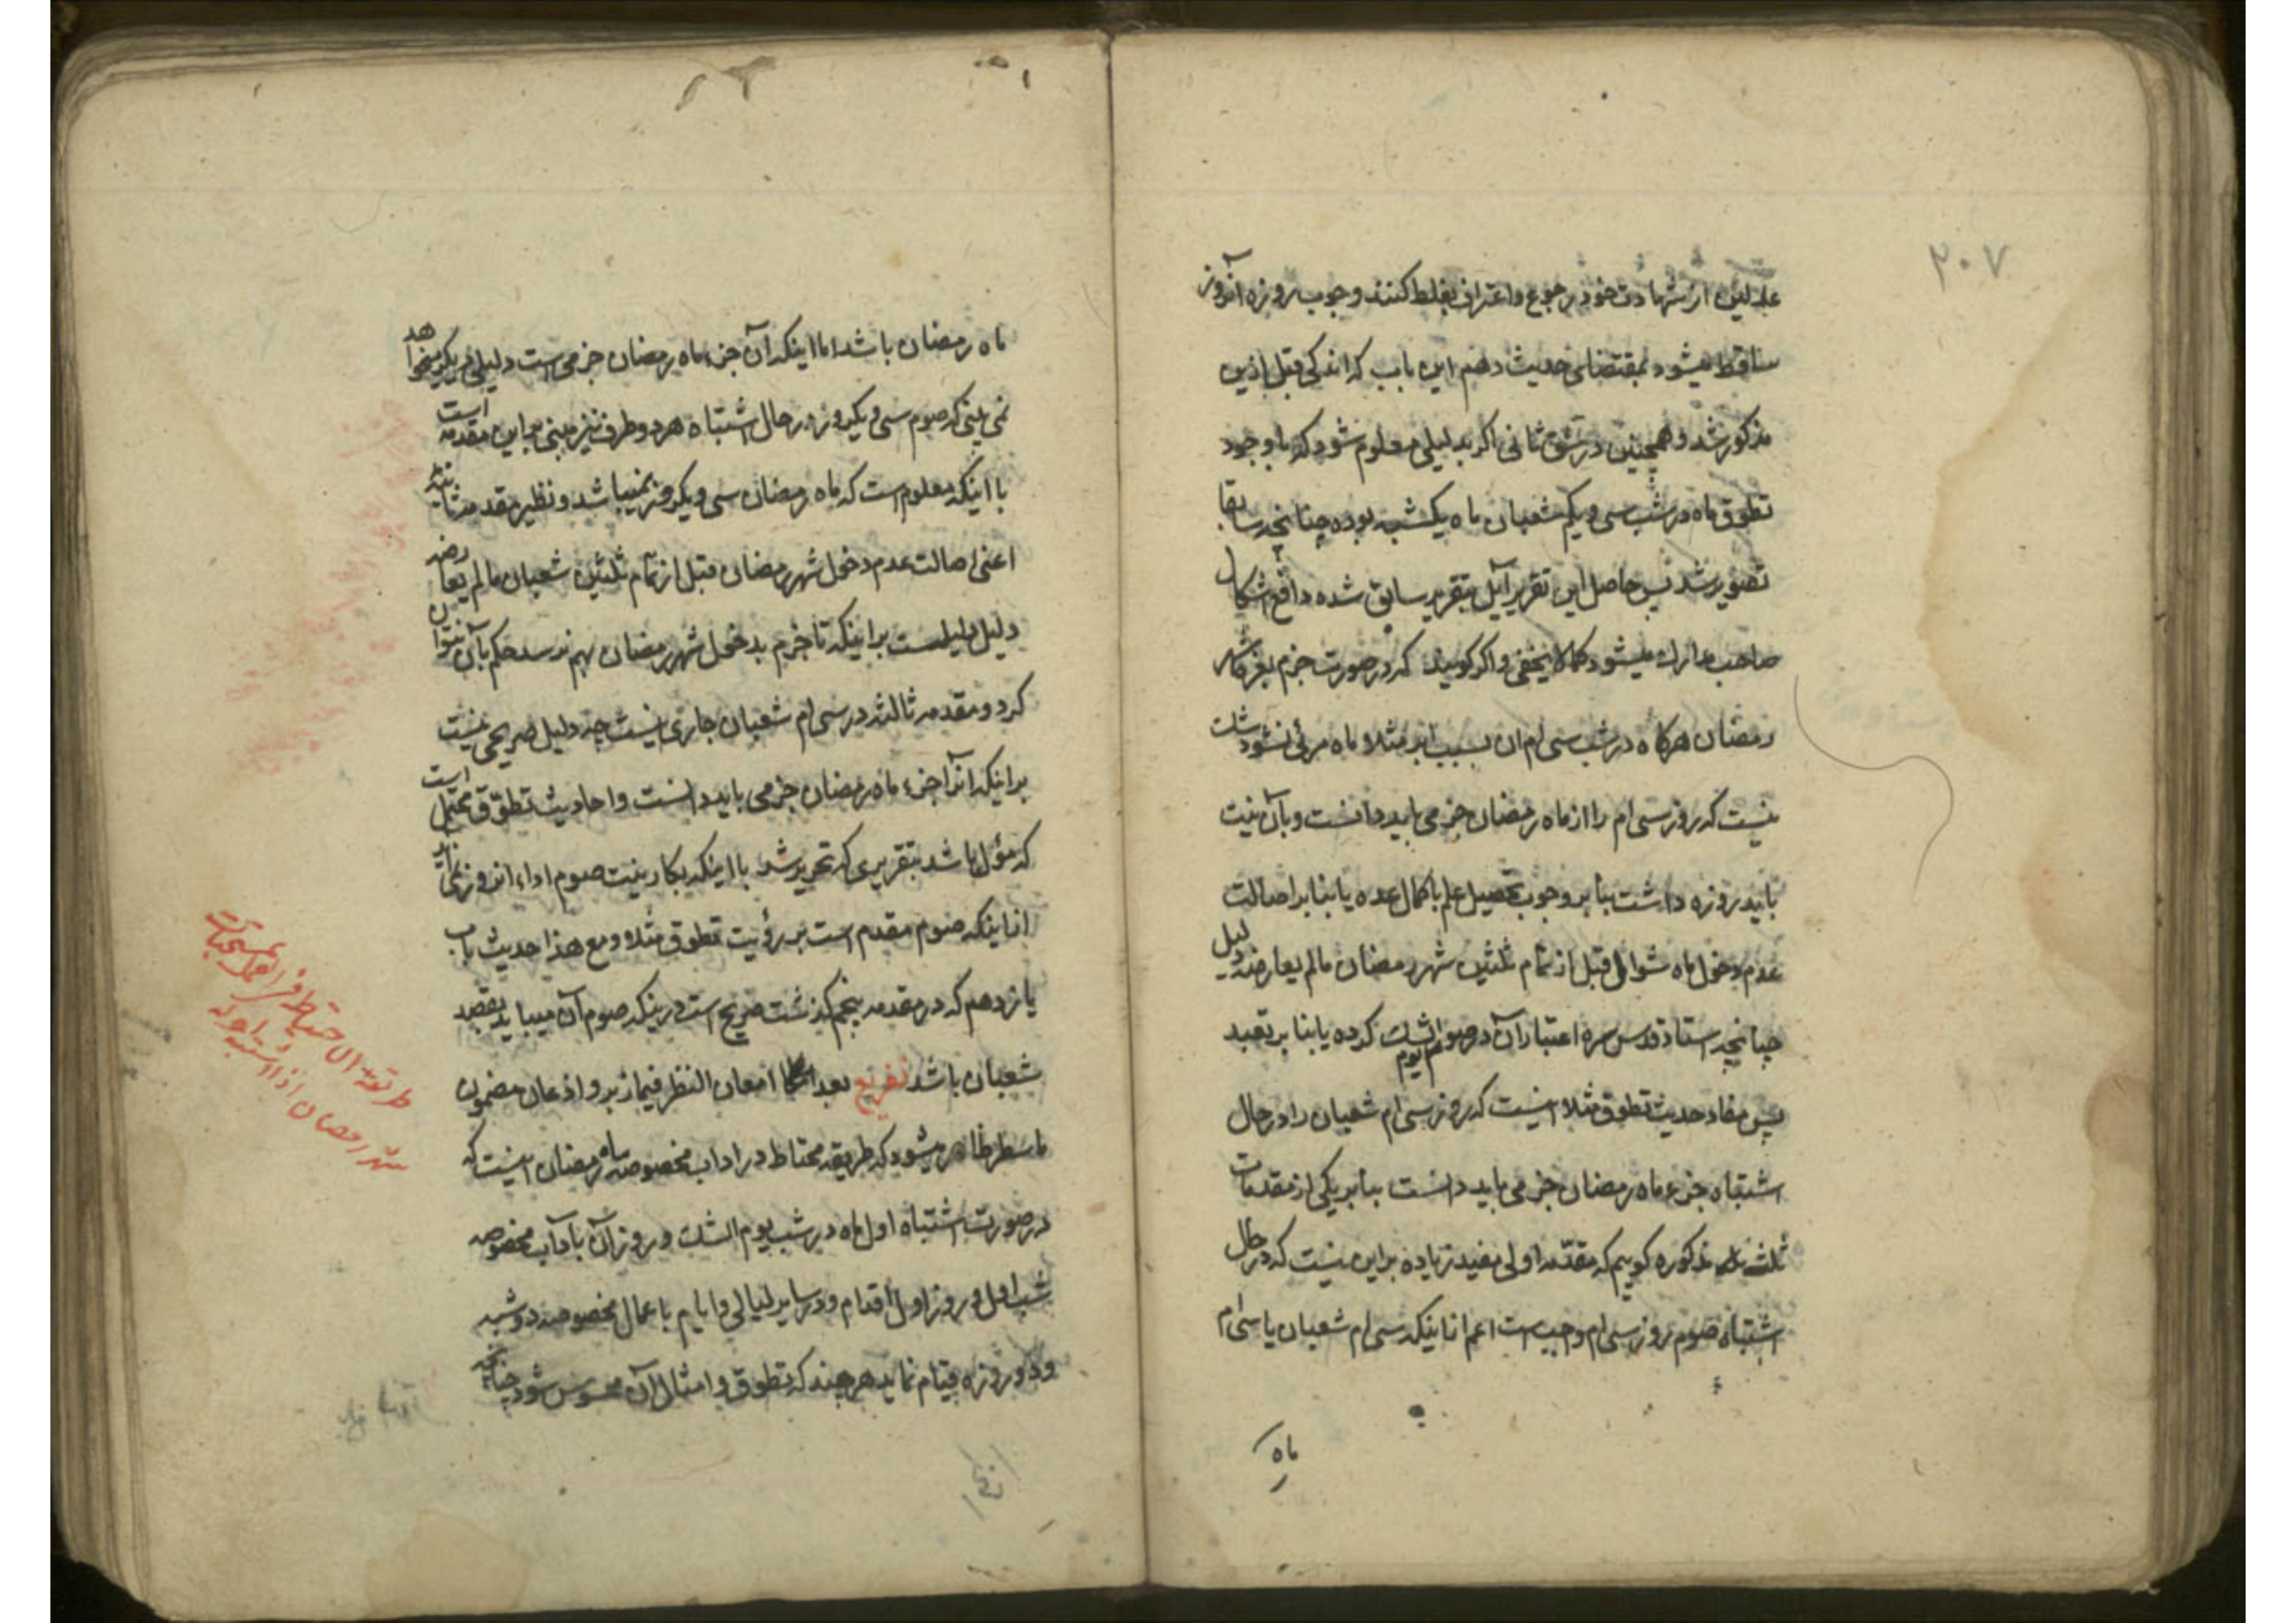 ۲۰۷
عدلین از شهادت خود رجوع و اعتراف بغلط کنند وجوب روزه آنروز
ساقط میشود بمقتضای حدیث دهم این باب که اندکی قبل ازین
مذکور شد و همچنین در شق ثانی اکر بدلیلی معلوم شود که با وجود
تطوق ماه در شب سی و یکم شعبان ماه یکشبه بوده چنانچه سابقا
تصویر شد پس حاصل این تقریر آیل بتقریر سابق شده دافع اشکال
صاحب مدارک میشود کما لا یخفی و اکر کویند که در صورت جزم بغره ماه
رمضان هرکاه در شب سی ام ان بسبب ابر مثلا ماه مرئی نشود شک
نیست که روز سی ام را از ماه رمضان جزمی باید دانست و بآن نیت
باید روزه داشت بنا بر وجوب تحصیل علم باکمال عده یا بنا بر اصالت
عدم دخول ماه شوال قبل از تمام ثلثین شهر رمضان مالم یعارضه دلیل
چنانچه استاد قدس سره اعتبار آن در صوم یوم الشک کرده یا بنا بر تعبد
پس مفاد حدیث تطوق مثلا اینست که روز سی ام شعبان را در حال
اشتباه جزء ماه رمضان جزمی باید دانست بنا بر یکی از مقدمات
ثلث مذکوره کوییم که مقدمه اولی مفید زیاده براین نیست که در حال
اشتباه صوم روز سی ام واجبست اعم از اینکه سی ام شعبان یا سی ام
ماه
ماه رمضان باشد اما اینکه آن جزء ماه رمضان جزمی است دلیلی دیگر میخواهد
نمی بینی که صوم سی و یکروز در حال اشتباه هر دو طرف نیز مبنی بر این مقدمه است
با اینکه معلوم است که ماه رمضان سی و یکروز نمیباشد و نظیر مقدمه ثانیه
اعنی اصالت عدم دخول شهر رمضان قبل از تمام ثلثین شعبان مالم یعارضه
دلیل دلیلست بر اینکه تا جزم بدخول شهر رمضان بهم نرسد حکم بآن نتوان
کرد و مقدمه ثالثه در سی ام شعبان جاری نیست چه دلیل صریحی نیست
بر اینکه انرا جزء ماه رمضان جزمی باید دانست و احادیث تطوق محتمل است
که مؤل باشد بتقریری که تحریر شد با اینکه بکار نیت صوم اداء انروز نمی آید
از اینکه صوم مقدم است بر رؤیت تطوق مثلا و مع هذا حدیث باب
یازدهم که در مقدمه پنجم کذشت صریح است در اینکه صوم آن میباید بقصد
شعبان باشد تفریع بعد امعان النظر فیما زبر و اذعان مضمون
ما سطر ظاهر میشود که طریقه محتاط در اداب مخصوصه ماه رمضان اینست که
در صورت اشتباه اول ماه در شب یوم الشک و روز آن بآداب مخصوصه
شب اول و روز اول اقدام و در سایر لیالی و ایام باعمال مخصوصه دو شب
و دو روزه قیام نماید هر چند که تطوق و امثال آن محسوس شود چنانکه
طریقة الاحتیاط فی العمل بمستحبات
شهر رمضان اذا اشتبه اوله